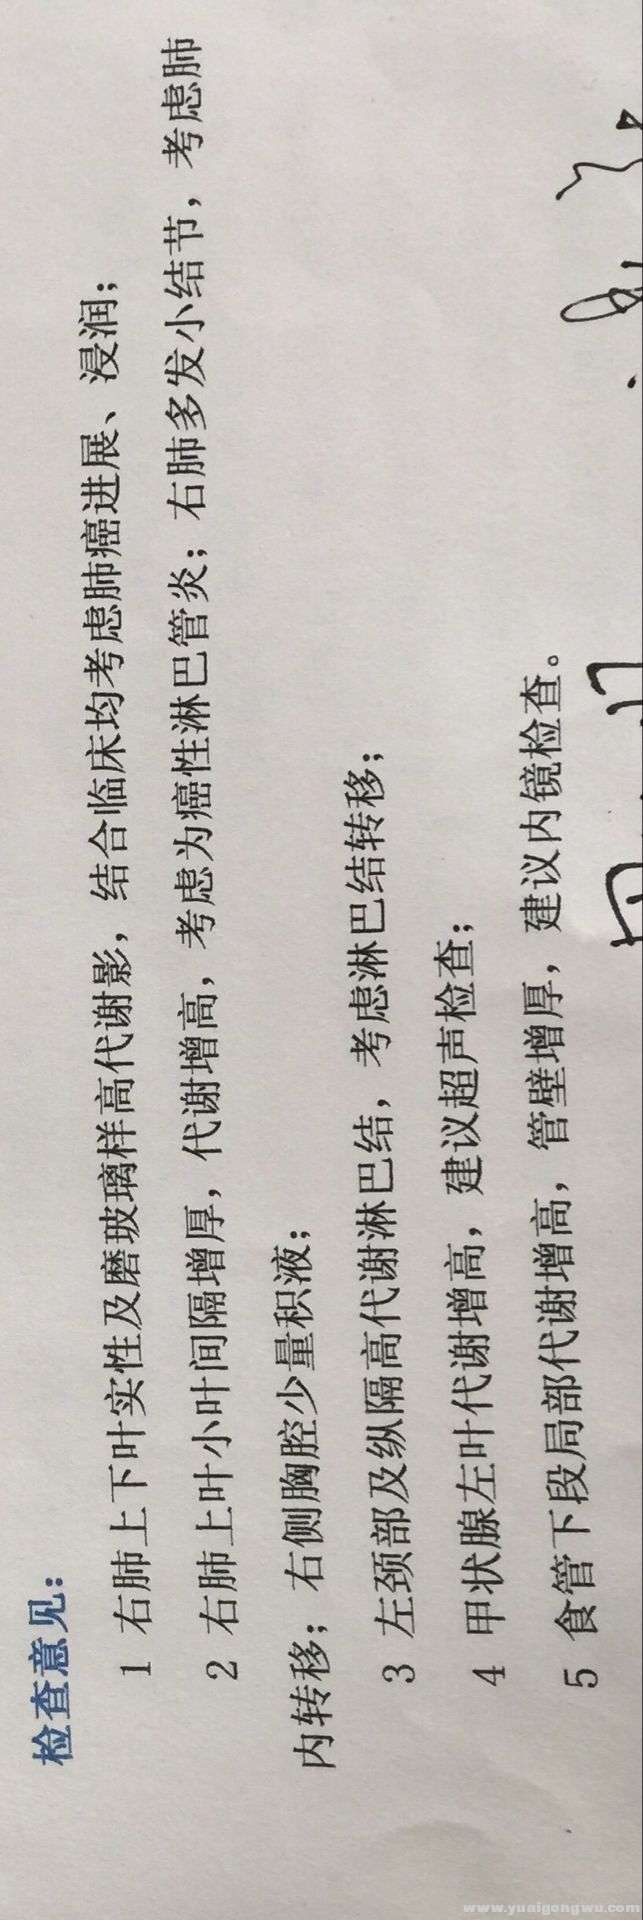 检查意见：
1 右肺上下叶实性及磨玻璃样高代谢影，结合临床均考虑肺癌进展、浸润；
2 右肺上叶小叶间隔增厚，代谢增高，考虑为癌性淋巴管炎；右肺多发小结节，考虑肺
内转移；右侧胸腔少量积液；
3 左颈部及纵隔高代谢淋巴结，考虑淋巴结转移；
4 甲状腺左叶代谢增高，建议超声检查；
5 食管下段局部代谢增高，管壁增厚，建议内镜检查。
www.yuaigongwu.com